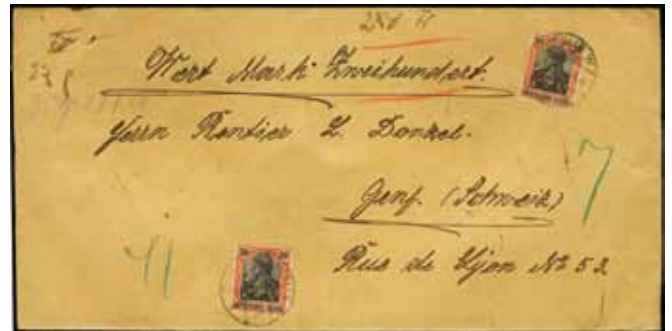 Wert Mark Zweihundert.
Herrn Rentier L. Dankel.
Genf. (Schweiz)
Rue de Lyon № 52
7